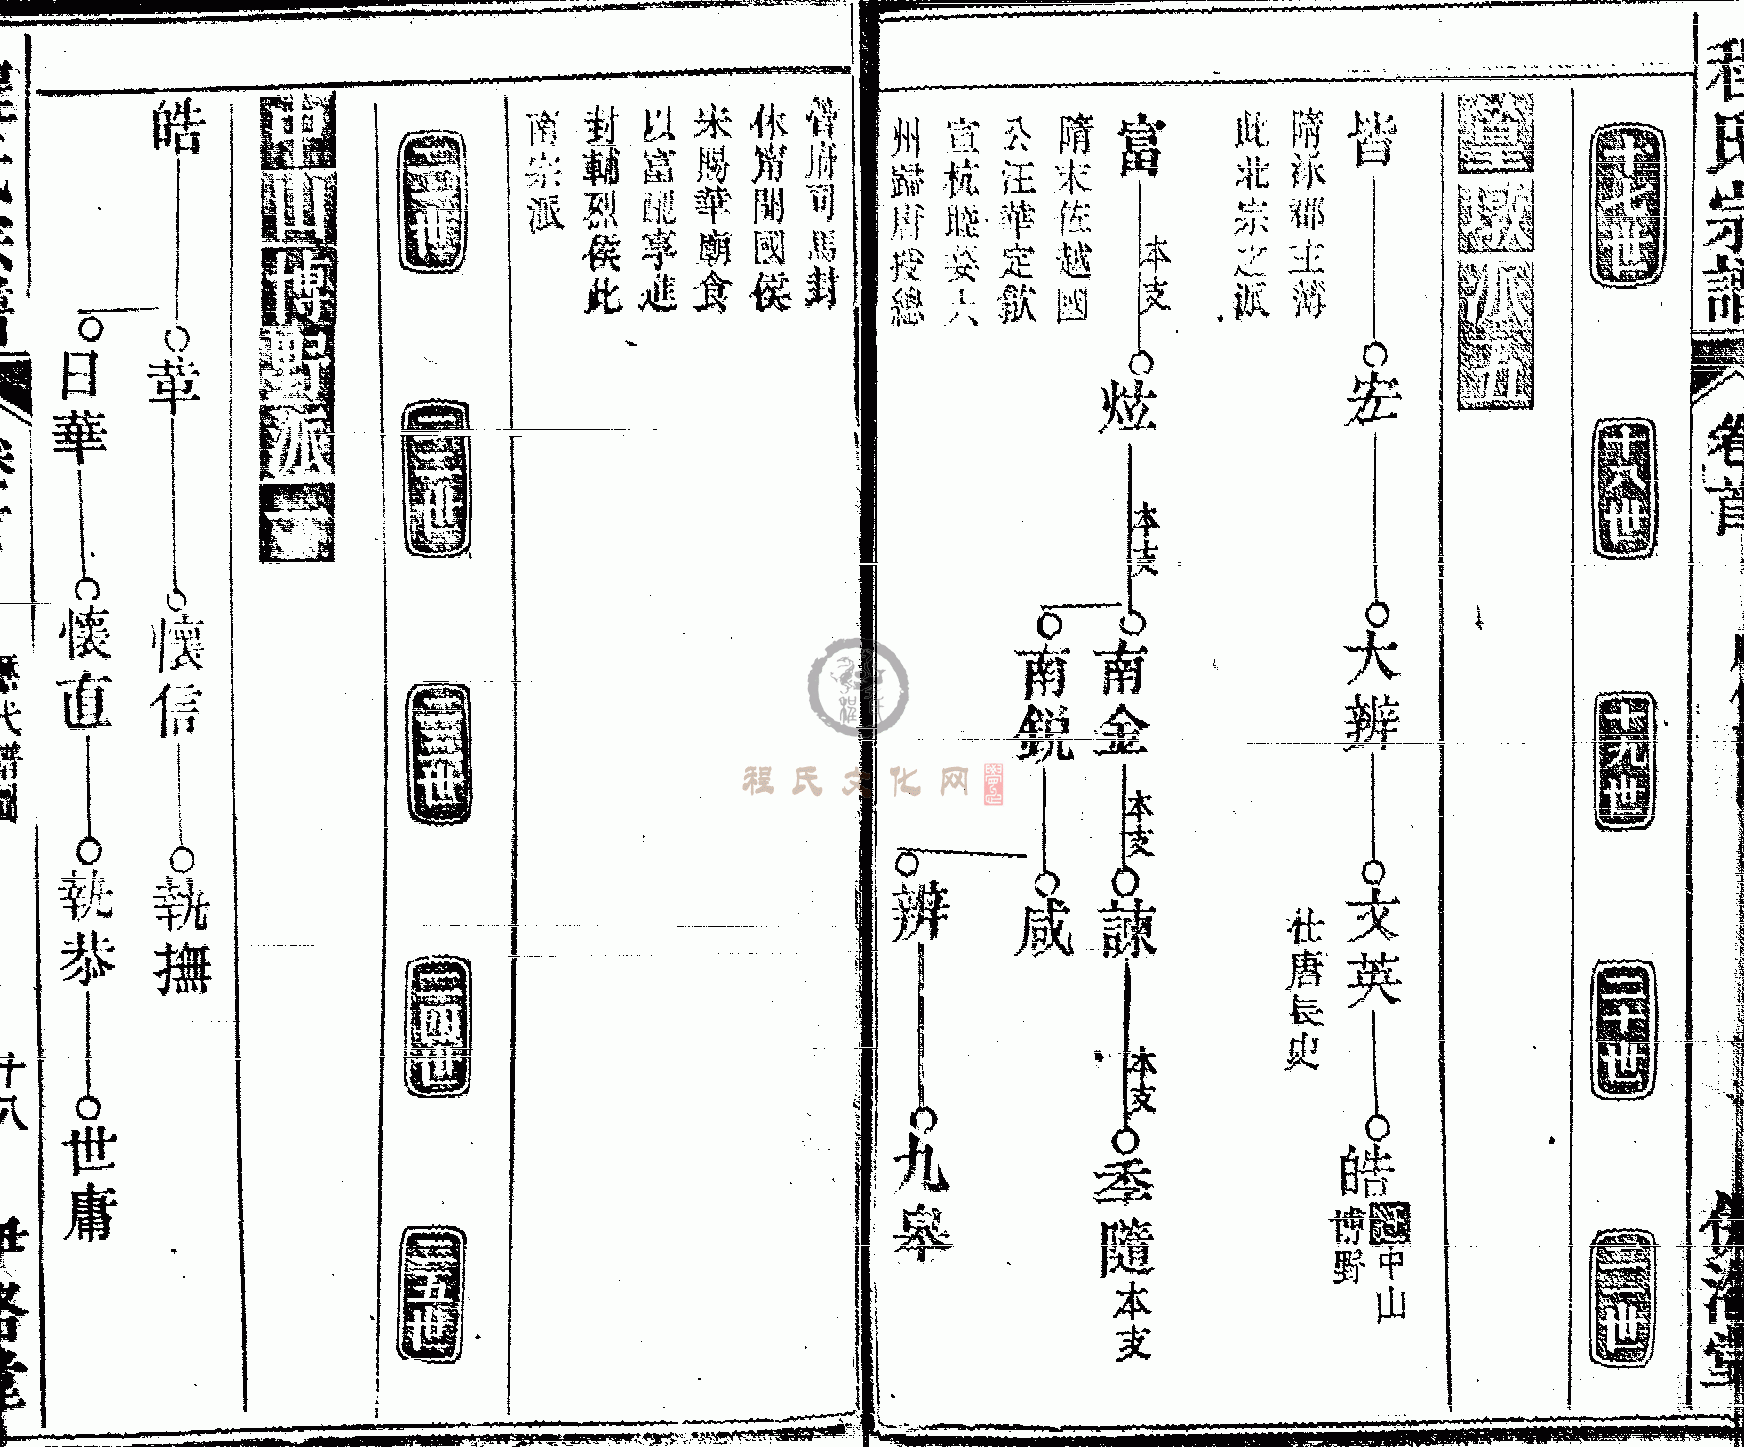 程氏宗譜
卷首
十七世
十八世
十九世
二十世
二一世
皇墩派五
皆
宏
大辨
文英
仕唐長史
皓
中山
博野
隋泳郡主簿
此北宗之派
富
本支
炫
本支
南金
本支
諫
本支
季隨
本支
南鋭
咸
辨
九皋
隋末佐越國
公汪華定歙
宣杭睦婺六
州歸唐授總
管府司馬封
休甯開國侯
宋陽華廟食
以富配享進
封輔烈侯此
南宗派
二一世
二二世
二三世
二四世
二五世
中山博野派一
皓
華
懷信
執撫
日華
懷直
執恭
世庸
歷代譜圖
十八
程氏文化网